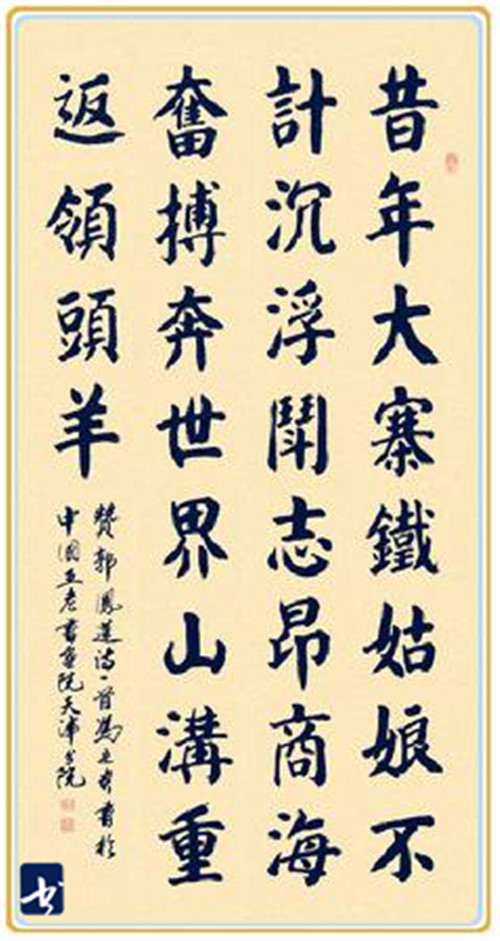 昔年大寨鐵姑娘不
計沉浮鬪志昂商海
奮搏奔世界山溝重
返領頭羊
贊郭鳳蓮詩一首馮書於
中國五老書畫院天津分院
书